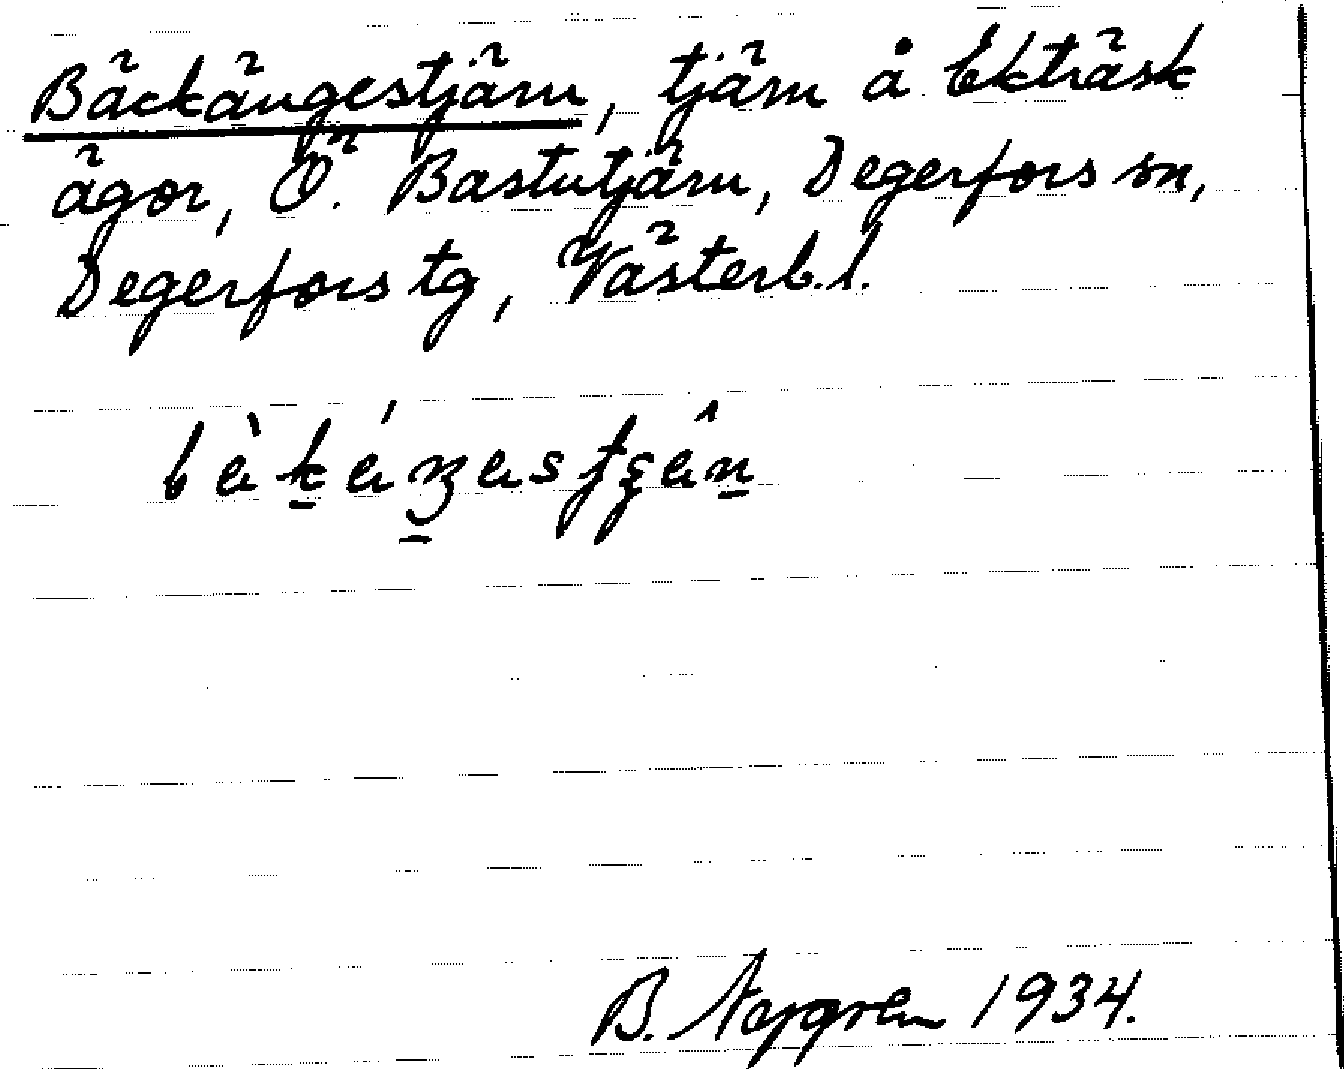 Bäckängestjärn, tjärn å Ekträsk
ägor, Ö. Bastutjärn, Degerfors sn,
Degerfors tg, Västerb. l.
B. 1934.